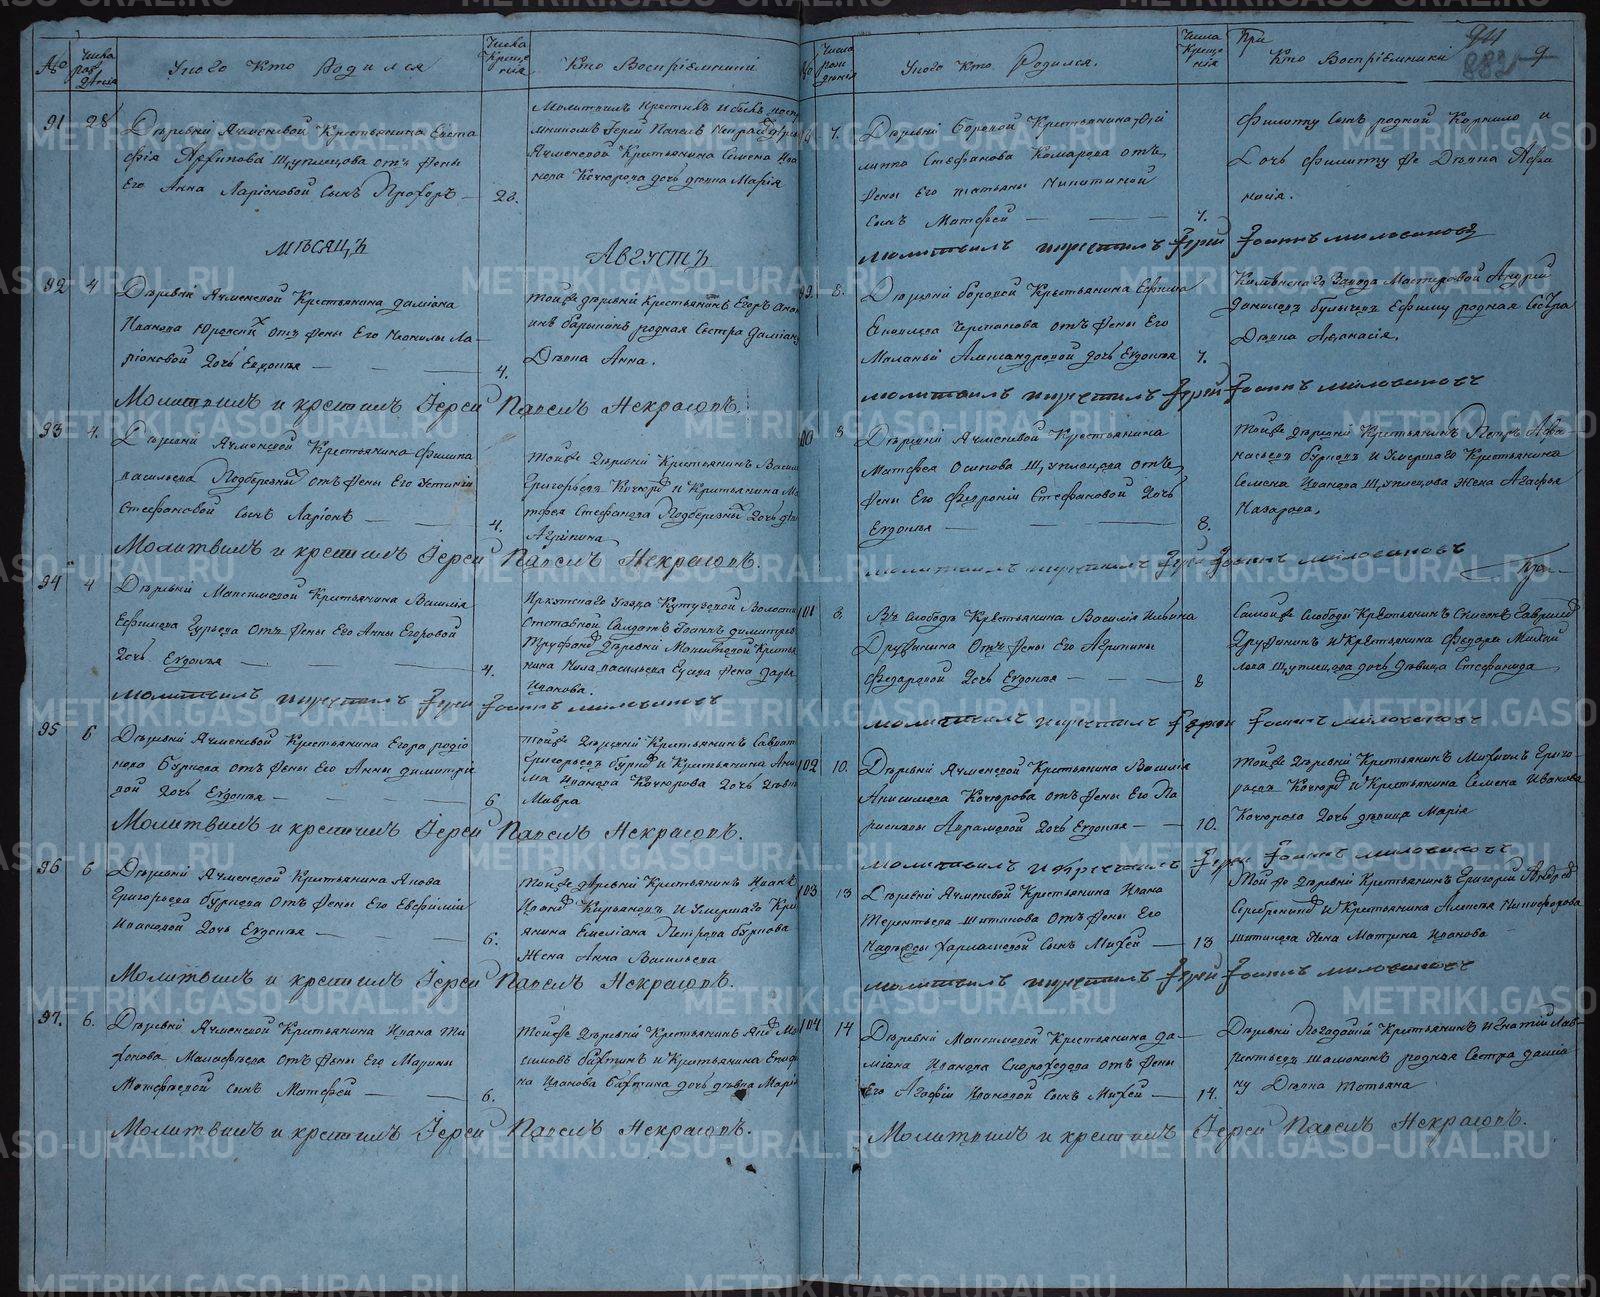 №
Числа рож денія
У кого Кто Родился
Числа Креще нія
Кто Воспріемники
91 28
Деревни Ячменевой Крестьянина Евста
фія Архипова Щуплецова отъ жены
Его Анны Ларіоновой сынъ Прохоръ
28.
Молитвилъ крестилъ и былъ
Іерей Павелъ Некрасовъ
Ячменевой Крестьянина Семена Ива
нова Кочюрова дочь девка Марія
Мѣсяцъ Августъ
92 4
Деревни Ячменевой Крестьянина Даміана
Иванова отъ жены Его Неонилы Ла-
ріоновой дочь Евдокья
4.
Той же деревни Крестьянинъ Егоръ
родная Сестра Даміану
Девка Анна.
Молитвилъ и крестилъ Іерей Павелъ Некрасовъ.
93 4.
Деревни Ячменевой Крестьянина Филипа
Васильева Подберезных отъ жены Его Устиньи
Стефановой сынъ Ларіонъ
4.
Той же деревни Крестьянинъ Васил
Григорьевъ Кочюров и Крестьянина Ма
тфея Стефанова Подберезных дочь
Агрипина
Молитвилъ и крестилъ Іерей Павелъ Некрасовъ.
94 4
Деревни Максимовой Крестьянина Василія
Ефимова Гурьева отъ жены Его Анны Егоровой
дочь Евдокья
4.
Иркутского уезда Кутузской Волости
Отставной Салдатъ Іоаннъ Димитріев
Труфанов деревни Максимовой Крестья
нина Нила Васильева Гусева жена Дарья
Иванова.
Молитвилъ и крестилъ Іерей Іоаннъ Миловановъ
95 6
Деревни Ячменевой Крестьянина Егора Родіо
нова Бурнова отъ жены Его Анны Димитріе
вой дочь Евдокья
6
Той же деревни Крестьянинъ Савват
Григорьевъ Бурнов и Крестьянина
Иванова Кочюрова дочь девка
Мавра
Молитвилъ и крестилъ Іерей Павелъ Некрасовъ.
96 6
Деревни Ячменевой Крестьянина Якова
Григорьева Бурнова отъ жены Его Евсфиміи
Ивановой дочь Евдокья
6.
Той же деревни Крестьянинъ Иванъ
Иванов Кирьяновъ и умершаго Кре
янина Емеліана Петрова Бурнова
Жена Анна Васильева
Молитвилъ и крестилъ Іерей Павелъ Некрасовъ.
97. 6.
Деревни Ячменевой Крестьянина Ивана Ти
хонова Малафеева отъ жены Его Марины
Матфеевой сынъ Матфей
6.
Той же деревни Крестьянинъ
симовъ Бахтинъ и Крестьянина
на Иванова Бахтина дочь девка Марія
Молитвилъ и крестилъ Іерей Павелъ Некрасовъ.
Числа рож денія
У кого Кто Родился.
Числа Креще нія
При
Кто Воспріемники
7.
Деревни Боровой Крестьянина Фи
липа Стефанова Комарова отъ
жены Его Татьяны Никитиной
сынъ Матфей
7.
Филипу сынъ родной Корнило и
дочь Филипу же девка Афа
насія.
Молитвилъ и крестилъ Іерей Іоаннъ Миловановъ
99. 8.
Деревни Боровой Крестьянина Ефима
Яковлева Черепанова отъ жены Его
Маланьи Александровой дочь Евдокья
7.
Завода Мастеровой Андрей
Даниловъ Булычевъ Ефиму родная Сестра
Девка Афанасія.
Молитвилъ и крестилъ Іерей Іоаннъ Миловановъ
100 8
Деревни Ячменевой Крестьянина
Матфея Осипова Щуплецова отъ
жены Его Февроніи Стефановой дочь
Евдокья
8.
Той же деревни Крестьянинъ Петръ Афа
насьевъ Бурновъ и умершаго Крестьянина
Семена Иванова Щуплецова жена Агафья
Назарова.
Молитвилъ и крестилъ Іерей Іоаннъ Миловановъ
101 8.
Въ Слободе Крестьянина Василія Ильина
Дружинина отъ жены Его Агрипины
Федаровой дочь Евдокья
8
Самой же Слободы Крестьянинъ Симонъ Гаврилов
Дружининъ и Крестьянина Федора Михай
лова Щуплецова дочь девица Стефанида
Молитвилъ и крестилъ Іерей Іоаннъ Миловановъ
102 10.
Деревни Ячменевой Крестьянина Василія
Анисимова Кочюрова отъ жены Его Па
расковьи Аврамовой дочь Евдокья
10.
Той же деревни Крестьянинъ Михаилъ Григо-
рьевъ Кочюров и Крестьянина Семена Иванова
Кочюрова дочь девица Марія
Молитвилъ и крестилъ Іерей Іоаннъ Миловановъ
103 13
Деревни Ячменевой Крестьянина Ивана
Терентьева Шитикова отъ жены Его
Надежды Харламовой сынъ Михей
13
Той же деревни Крестьянинъ Григорій Андреев
Серебренников и Крестьянина Алексея Никифорова
Шитикова жена Матрена Иванова
Молитвилъ и крестилъ Іерей Іоаннъ Миловановъ
104 14
Деревни Максимовой Крестьянина Да-
міана Иванова Скороходова отъ жены
Его Агафіи Ивановой сынъ Михей
14.
Деревни Погадаевой Крестьянинъ Игнатій Лав-
рентьевъ Шамонинъ родная Сестра Даміа
ну Девка Татьяна
Молитвилъ и крестилъ Іерей Павелъ Некрасовъ.
METRIKI.GASO-URAL.RU